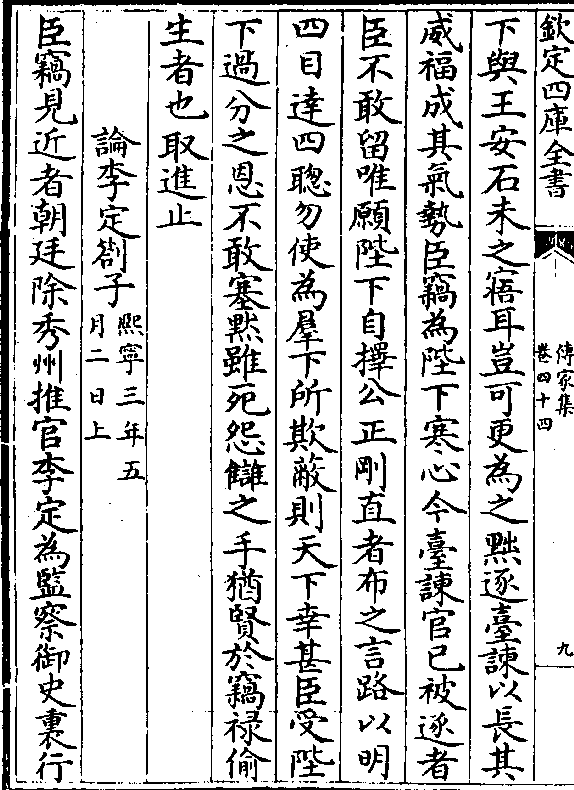 欽定四庫全書
傳家集
卷四十四
九
下與王安石未之寤耳豈可更為之黜逐臺諫以長其
威福成其氣勢臣竊為陛下寒心今臺諫官已被逐者
臣不敢留唯願陛下自擇公正剛直者布之言路以明
四目達四聰勿使為羣下所欺蔽則天下幸甚臣受陛
下過分之恩不敢塞黙雖死怨讎之手猶賢於竊禄偷
生者也取進止
論李定劄子熙寧三年五
月二日上
臣竊見近者朝廷除秀州推官李定為監察御史裏行